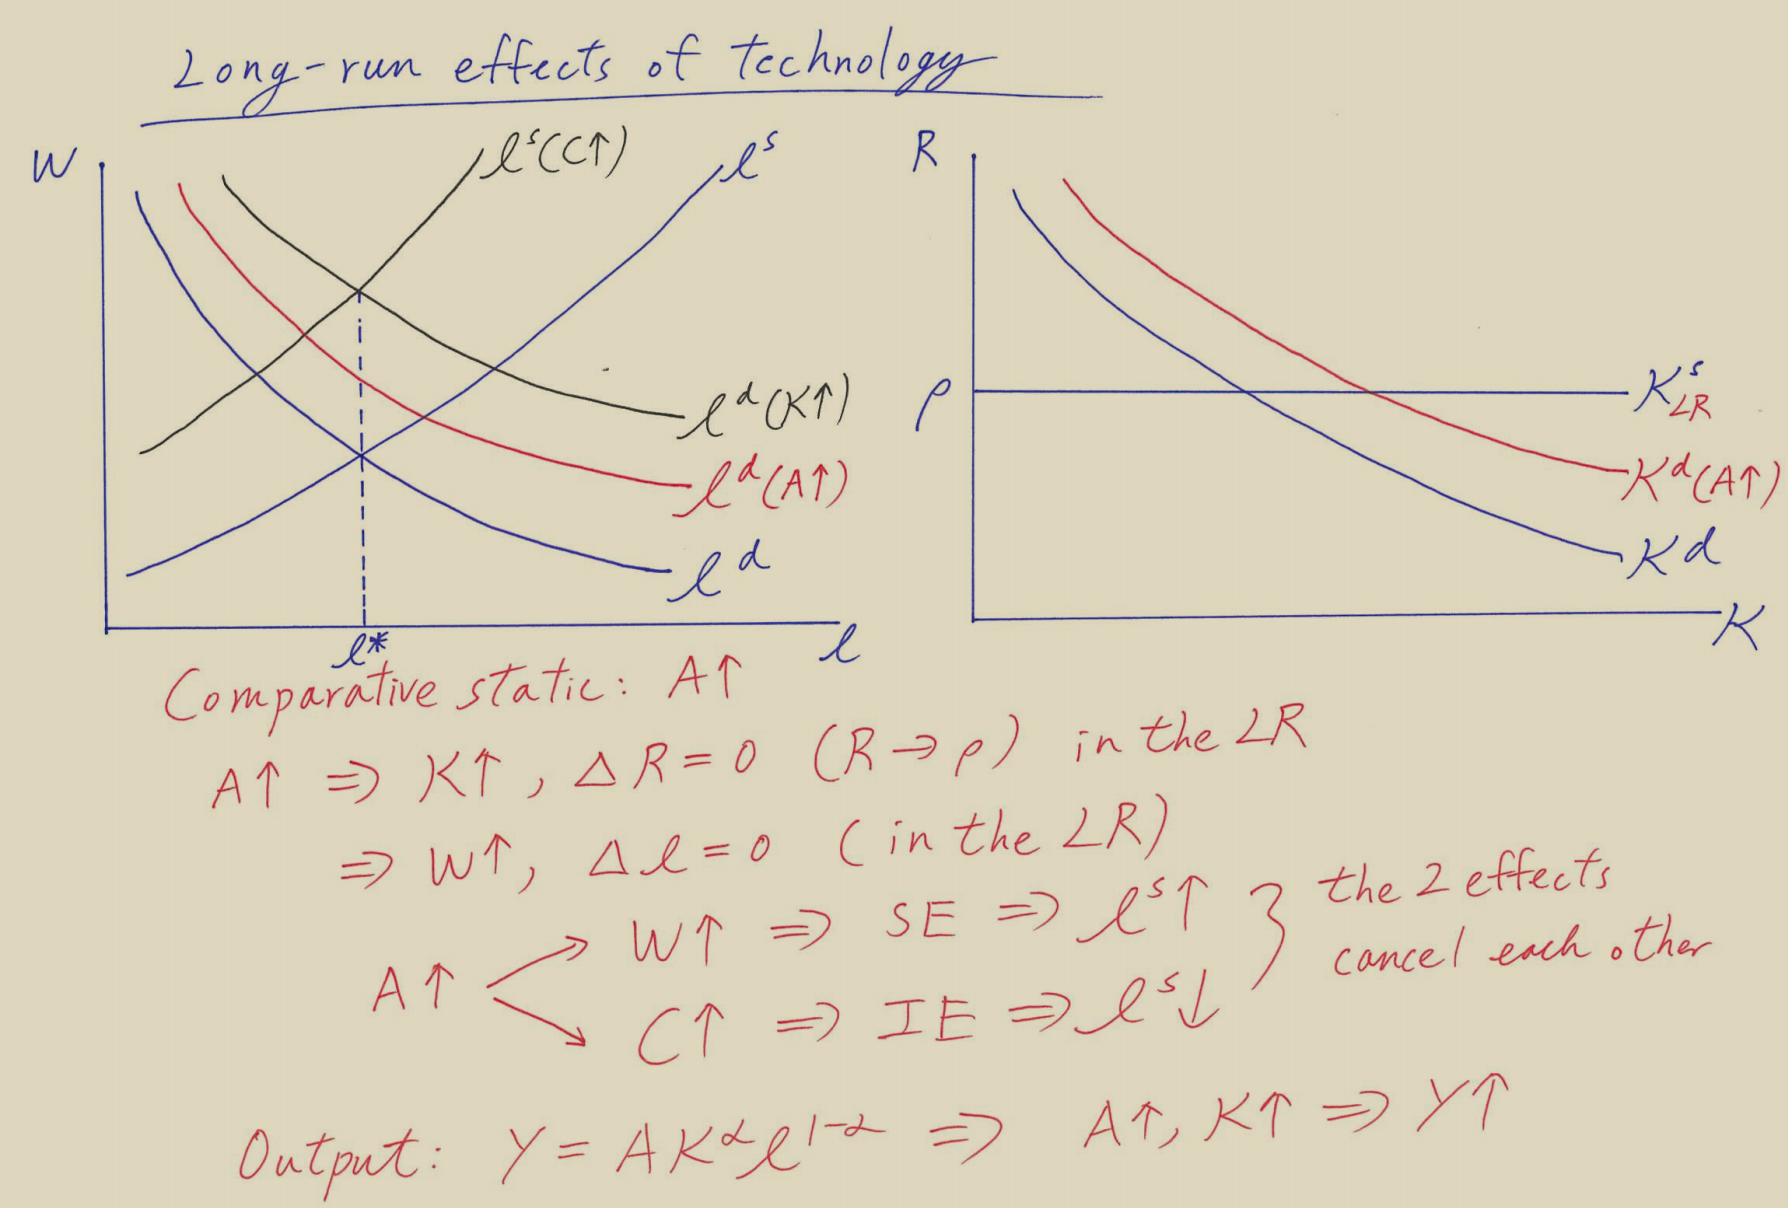 Long-run effects of technology
W
l^s(C↑)
l^s
l^d(K↑)
l^d(A↑)
l^d
l*
l
R
ρ
K^s_LR
K^d(A↑)
K^d
K
Comparative static: A↑
A↑ ⇒ K↑, ΔR = 0 (R → ρ) in the LR
⇒ W↑, Δl = 0 (in the LR)
W↑ ⇒ SE ⇒ l^s↑
A↑
C↑ ⇒ IE ⇒ l^s↓
the 2 effects
cancel each other
Output: Y = AK^α l^1-α ⇒ A↑, K↑ ⇒ Y↑